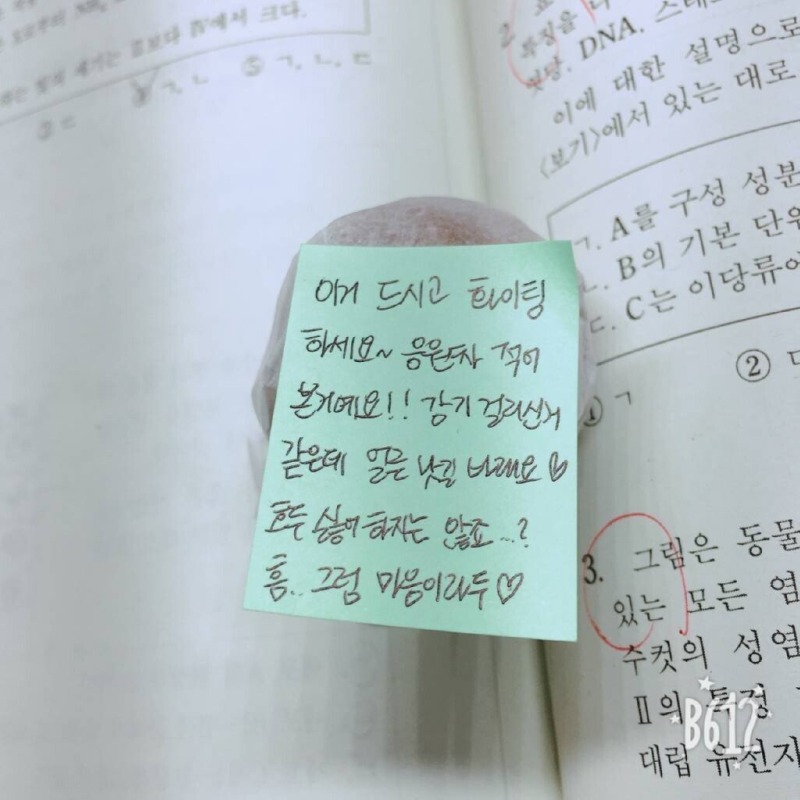 크다.
ㄱ, ㄴ ⑤ ㄱ, ㄴ, ㄷ
③ ㄷ
이거 드시고 화이팅
하세요~ 응원차 적어
본거예요!! 감기 걸리신거
같은데 얼른 낫길 바래요♡
호두 싫어 하자는 않죠...?
흠.. 그럼 마음이라두♡
2.
특징을
엿당. DNA.
이에 대한 설명으로
<보기>에서 있는 대로
ㄱ. A를 구성 성분
ㄴ. B의 기본 단위
ㄷ. C는 이당류에
① ㄱ ②
3. 그림은 동물
있는 모든 염
수컷의 성염
Ⅱ의 특정
대립 유전자
B612